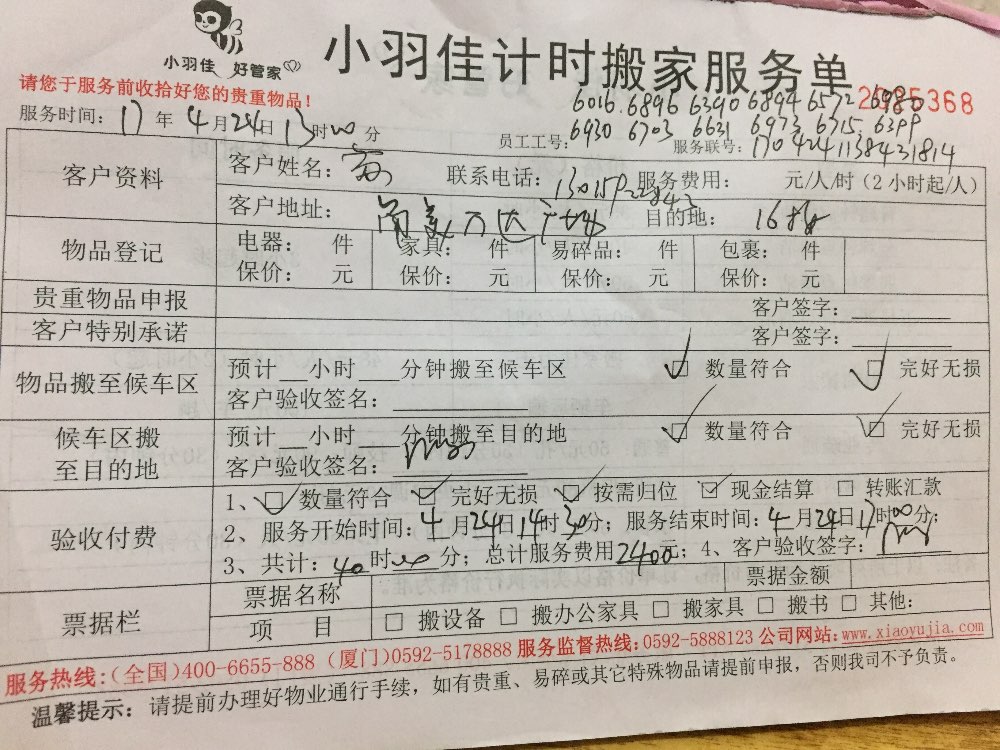 小羽佳 好管家
小羽佳计时搬家服务单
请您于服务前收拾好您的贵重物品!
6016.6896 6390 6894 6572 6980
5368
服务时间: 17年4月24日13时00分
员工工号: 6930 6703 6631 6973 6715. 6399
服务联号: 170424113843 1814
客户资料
客户姓名: 联系电话: 服务费用: 元/人/时(2小时起/人)
客户地址: 万达 目的地:
物品登记
电器: 件 家具: 件 易碎品: 件 包裹: 件
保价: 元 保价: 元 保价: 元 保价: 元
贵重物品申报 客户签字:
客户特别承诺 客户签字:
物品搬至候车区
预计__小时___分钟搬至候车区 □ 数量符合 □ 完好无损
客户验收签名:
候车区搬
至目的地
预计__小时___分钟搬至目的地 □ 数量符合 □ 完好无损
客户验收签名:
验收付费
1、□ 数量符合 □ 完好无损 □ 按需归位 □ 现金结算 □ 转账汇款
2、服务开始时间: 4月24日14时30分; 服务结束时间: 4月24日17时00分;
3、共计: 40时00分; 总计服务费用2400元; 4、客户验收签字:
票据栏
票据名称 票据金额
项 目 □ 搬设备 □ 搬办公家具 □ 搬家具 □ 搬书 □ 其他:
服务热线:(全国)400-6655-888 (厦门)0592-5178888 服务监督热线:0592-5888123 公司网站:www.xiaoyujia.com
温馨提示: 请提前办理好物业通行手续, 如有贵重、易碎或其它特殊物品请提前申报, 否则我司不予负责。